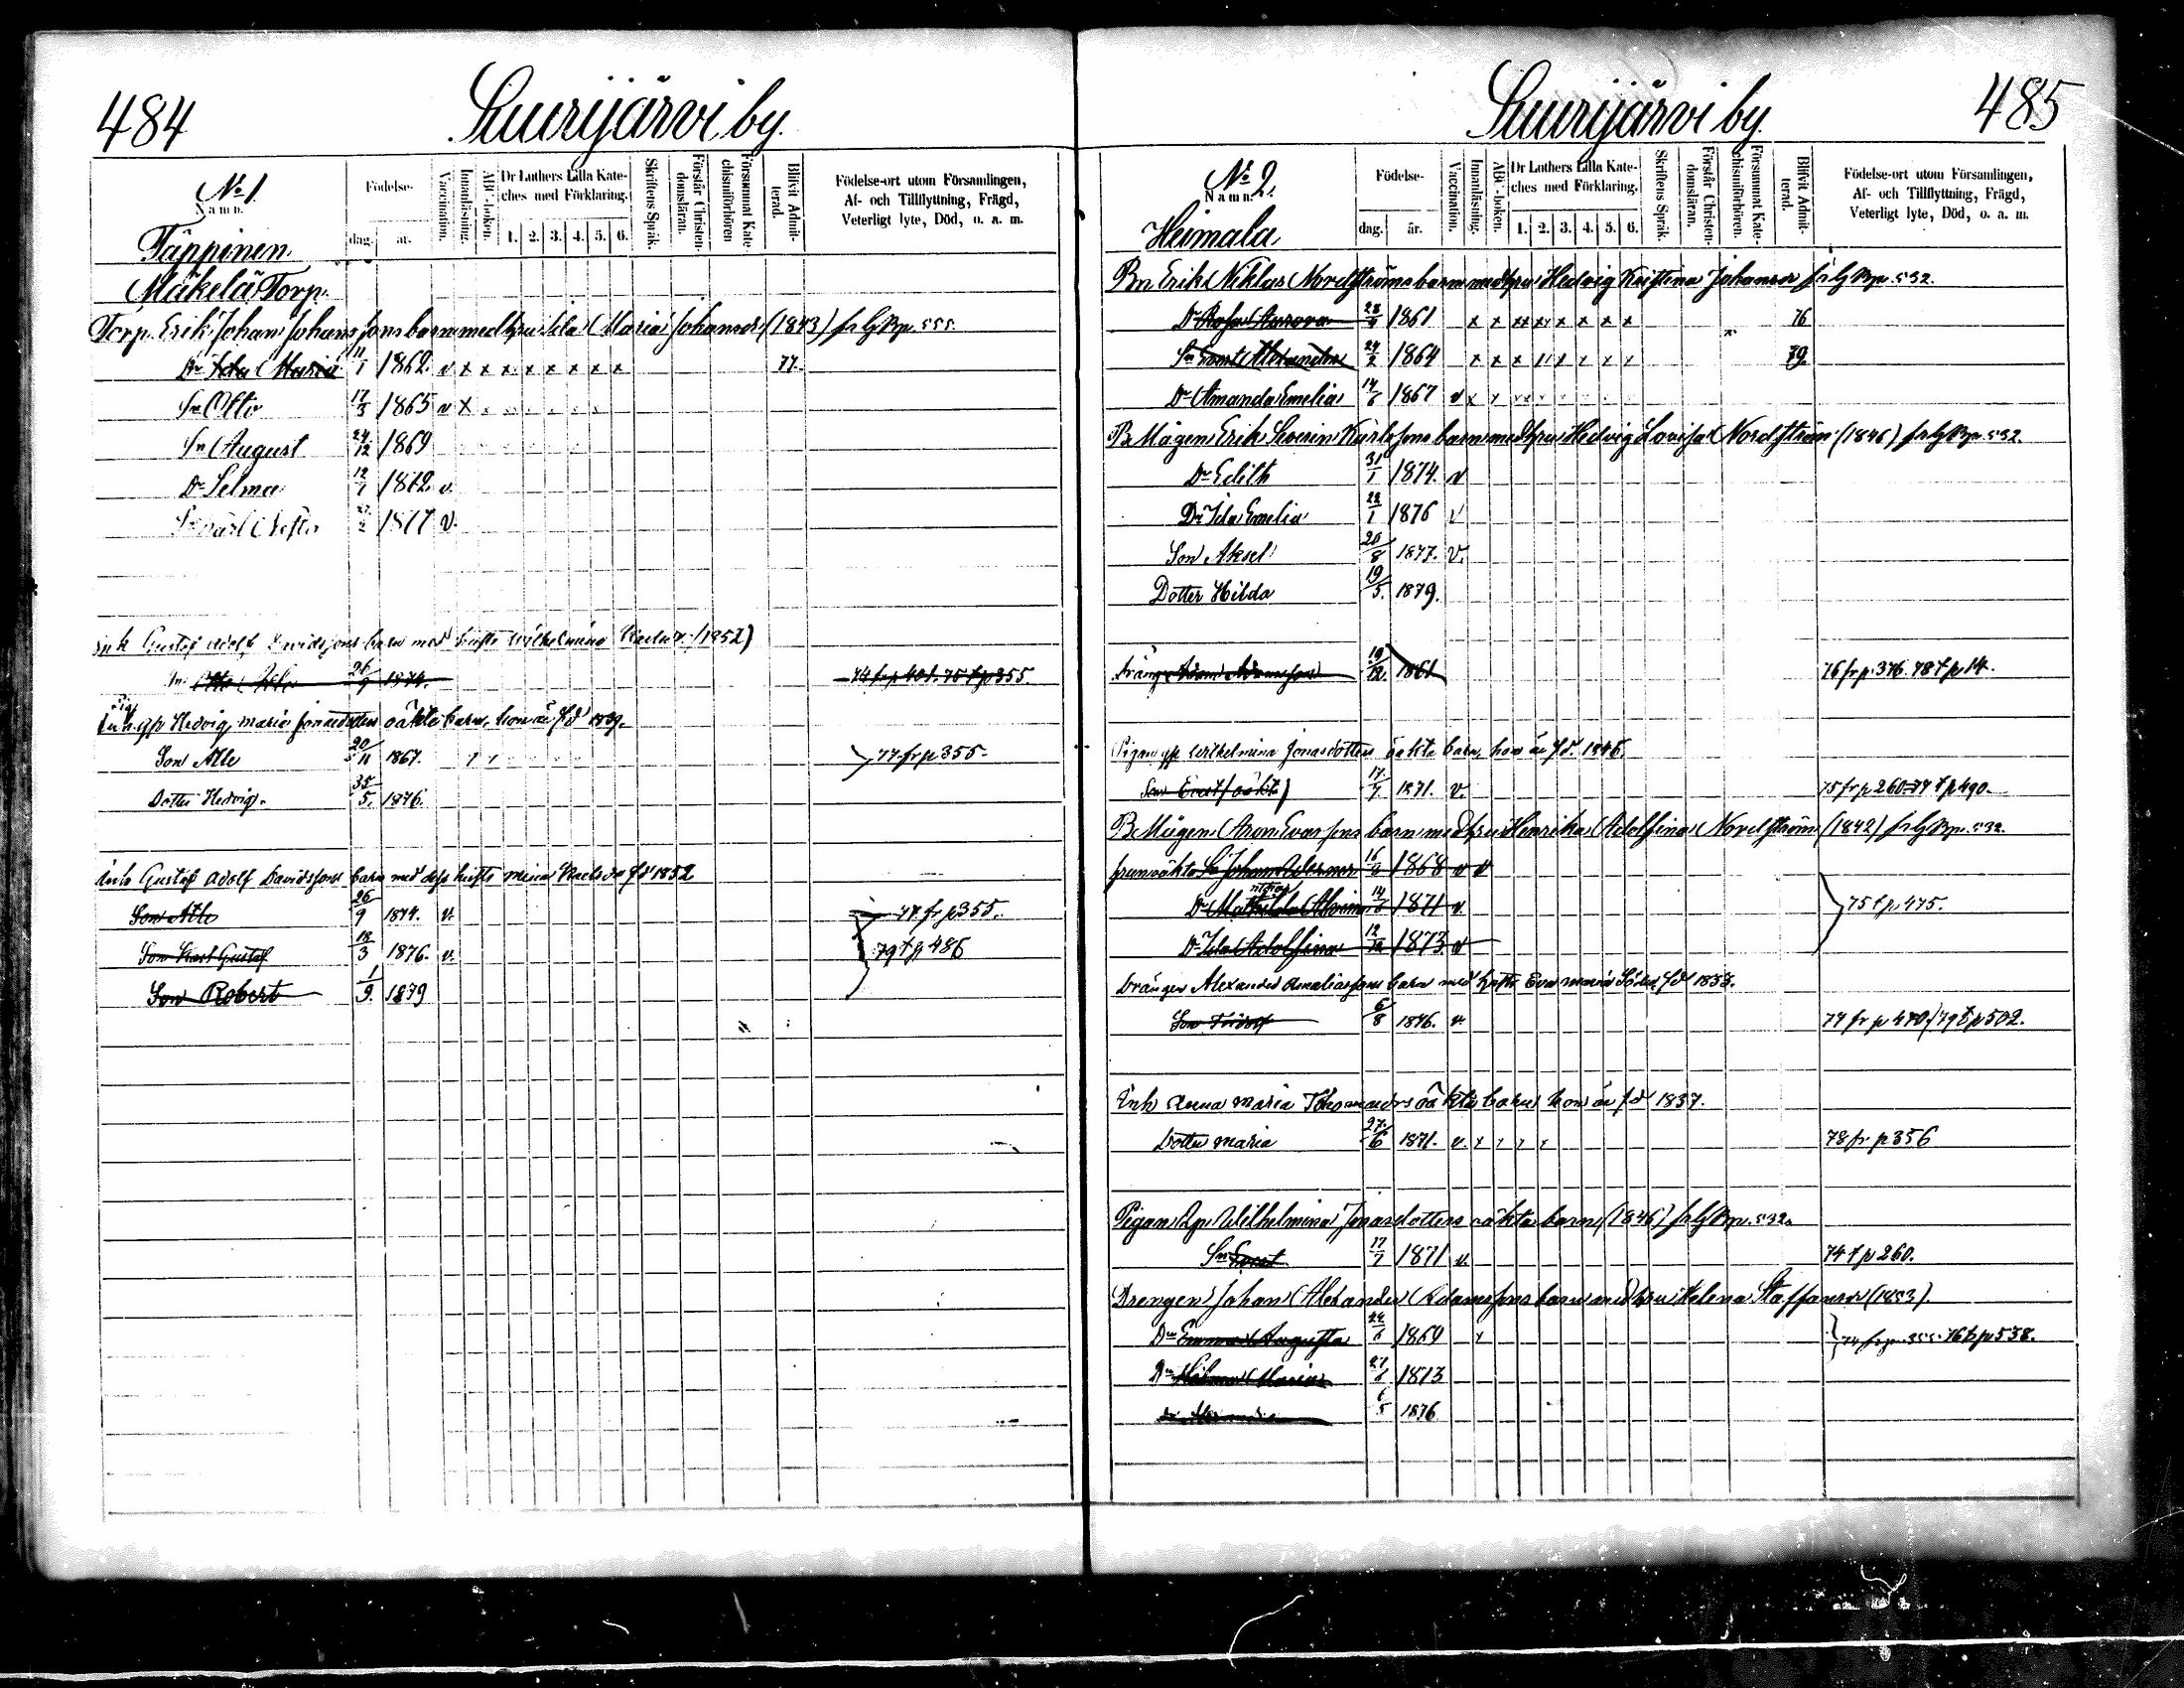 484
Suurijärvi by.
No 1.
Namn.
Födelse-
dag. år.
Vaccination.
Innanläsning.
ABC-boken.
Dr Luthers Lilla Kate-
ches med Förklaring.
1. 2. 3. 4. 5. 6.
Skriftens Språk.
Förstår Christen-
domsläran.
Försummat Kate-
chismiförhören
Blifvit Admit-
terad.
Födelse-ort utom Församlingen,
Af- och Tillflyttning, Frägd,
Veterligt lyte, Död, o. a. m.
Täppinen.
Mäkelä Torp.
Torp. Erik Johan Johanssons barn med hru Ida Maria Johansdr (1843) p. 555.
Dr Ida Maria 11/1 1862. v x x x x x x x x 77.
Sn Otto 17/3 1865 v x
Sn August 24/12 1869
Dr Selma 12/1 1872. v.
Sn Karl 1877 v.
Inh Gustaf Adolf Davidssons barn med hustr Wilhelmina (1852)
26/9 1874. 74 fr p 401. 75 t p 355.
Hedvig Maria Jonasdotters oäkta barn, hon är fd 1839.
Son Alle 20/11 1867. 77 fr p 355.
Dotter Hedvig. 5. 1876.
Inh Gustaf Adolf Davidssons barn med dess hustr Mina Karlsdr fd 1852
Son Alle 26/9 1874. v. 77 fr p 355.
Son Karl Gustaf 18/3 1876. v. 79 t p 486
Son Robert 1/9. 1879
485
Suurijärvi by.
No 2.
Namn.
Födelse-
dag. år.
Vaccination.
Innanläsning.
ABC-boken.
Dr Luthers Lilla Kate-
ches med Förklaring.
1. 2. 3. 4. 5. 6.
Skriftens Språk.
Förstår Christen-
domsläran.
Försummat Kate-
chismiförhören.
Blifvit Admit-
terad.
Födelse-ort utom Församlingen,
Af- och Tillflyttning, Frägd,
Veterligt lyte, Död, o. a. m.
Heimala
Bn Erik Niklas Nordströms barn med hru Hedvig Kristina Johansdr p. 532.
Dr Rosa Aurora 1861 x x xx xx x x x x 76
Sn Ernst Alexander 24/2 1864 x x x x x x x x 79.
Dr Amanda Emelia 14/6 1867 v x
B. Mågen Erik Severin Karlssons barn med hru Hedvig Lovisa Nordström (1846) p. 532.
Dr Edith 31/1 1874. v
Dr Ida Emelia 22/1 1876 v
Son Aksel 20/8 1877. v.
Dotter Hilda 19/5. 1879.
Dräng Adam Adamsson 19/12. 1861 76 fr p. 376. 78 t p 14.
Pigan Wilhelmina Jonasdotters oäkta barn, hon är fd. 1846.
Son Ernst (oäkt) 17/7 1871. v. 75 fr p 260 77 t p 490.
B. Mågen Aron Evarssons barn med hru Henrika Adolfina Nordström (1842) p. 532.
Sn Johan Werner 1868 v v
Dr Mathilda Alvina 1871 v 75 t p 475.
Dr Ida Adolfina 1873 v
Drängen Alexander Amaliassons barn med hustr Eva Maria fd 1853.
Son Fridolf 6/8 1876. v. 77 fr p 470/79 t p 502.
Inh Anna Maria oäkta barn hon är fd 1837.
Dotter Maria 27/6 1871. v. x x x x 78 fr p 356
Pigan Wilhelmina Jonasdotters oäkta barn (1846) p. 532.
Sn Ernst 17/7 1871 v. 74 t p 260.
Drengen Johan Alexander Adamssons barn med hru Helena Staffansdr (1853).
Dr Emma Augusta 1869 x 76 t p 538.
Dr Hilma Maria 1873
5 1876